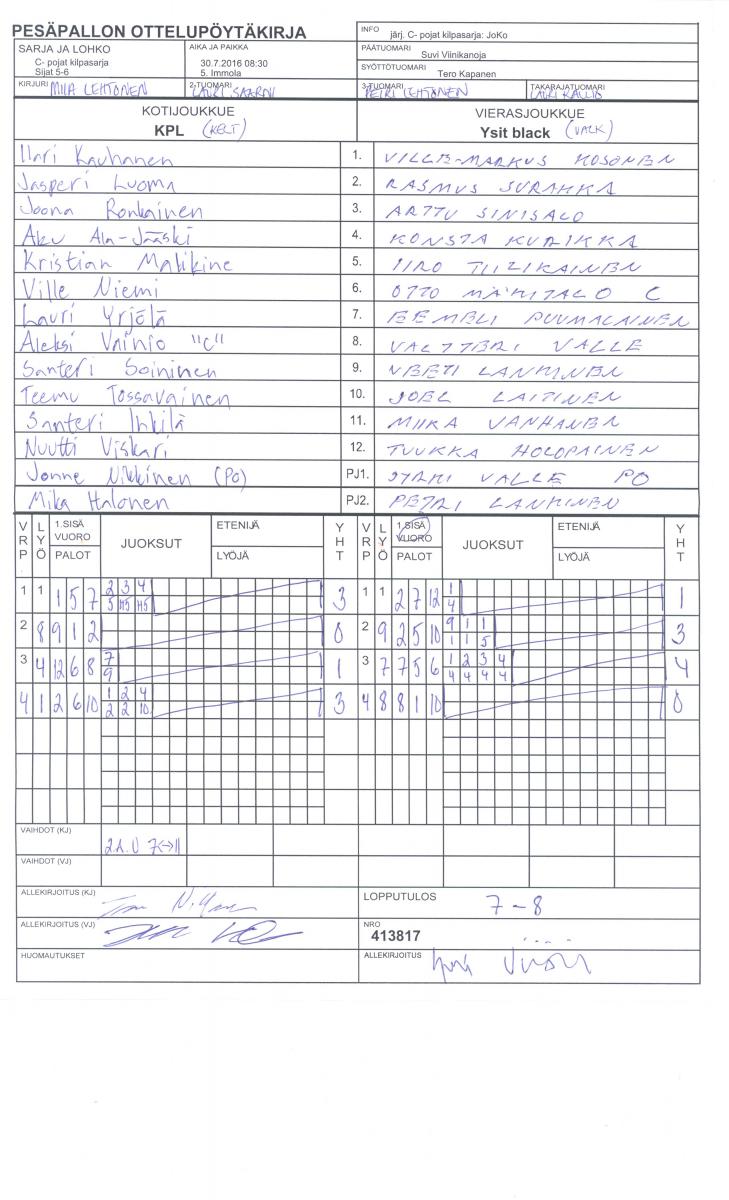 PESÄPALLON OTTELUPÖYTÄKIRJA
INFO järj. C- pojat kilpasarja: JoKo
SARJA JA LOHKO
C- pojat kilpasarja
Sijat 5-6
AIKA JA PAIKKA
30.7.2016 08:30
5. Immola
PÄÄTUOMARI
Suvi Viinikanoja
SYÖTTÖTUOMARI
Tero Kapanen
KIRJURI MIIA LEHTONEN
2-TUOMARI LAURI
3-TUOMARI PETRI LEHTONEN
TAKARAJATUOMARI LAURI KALLIO
KOTIJOUKKUE
KPL (KELT)
VIERASJOUKKUE
Ysit black (VALK)
Ilari Kauhanen 1. VILLE-MARKUS KOSONEN
Jasperi Luoma 2. RASMUS SURAKKA
Joona Ronkainen 3. ARTTU SINISALO
Aku Ala-Jääski 4. KONSTA KURIKKA
Kristian Malikine 5. IIRO TIILIKAINEN
Ville Niemi 6. OTTO MÄKITALO C
Lauri Yrjölä 7. EEMELI PUUMALAINEN
Aleksi Vainio "C" 8. VALTTERI VALLE
Santeri Soininen 9. VEETI LANKINEN
Teemu Tossavainen 10. JOEL LAITINEN
Santeri Ihkilä 11. MIIKA VANHANEN
Nuutti Viskari 12. TUUKKA HOLOPAINEN
Jonne Nikkinen (PO) PJ1. JYRKI VALLE PO
Mika Halonen PJ2. PETRI LANKINEN
VRP LYÖ 1.SISÄ VUORO PALOT JUOKSUT ETENIJÄ LYÖJÄ YHT VRP LYÖ 1.SISÄ VUORO PALOT JUOKSUT ETENIJÄ LYÖJÄ YHT
1 1 1 5 7 2 3 4 3 1 1 2 7 12 1 1
5 H5 H5 4
2 8 9 1 2 0 2 9 2 5 10 9 1 1 3
1 1 5
3 4 12 6 8 7 1 3 7 7 5 6 1 2 3 4 4
9 4 4 4 4
4 1 2 6 10 1 2 4 3 4 8 8 1 10 0
2 2 10
VAIHDOT (KJ) 2.L.V 7<->11
VAIHDOT (VJ)
ALLEKIRJOITUS (KJ)
LOPPUTULOS 7-8
ALLEKIRJOITUS (VJ)
NRO
413817
HUOMAUTUKSET
ALLEKIRJOITUS